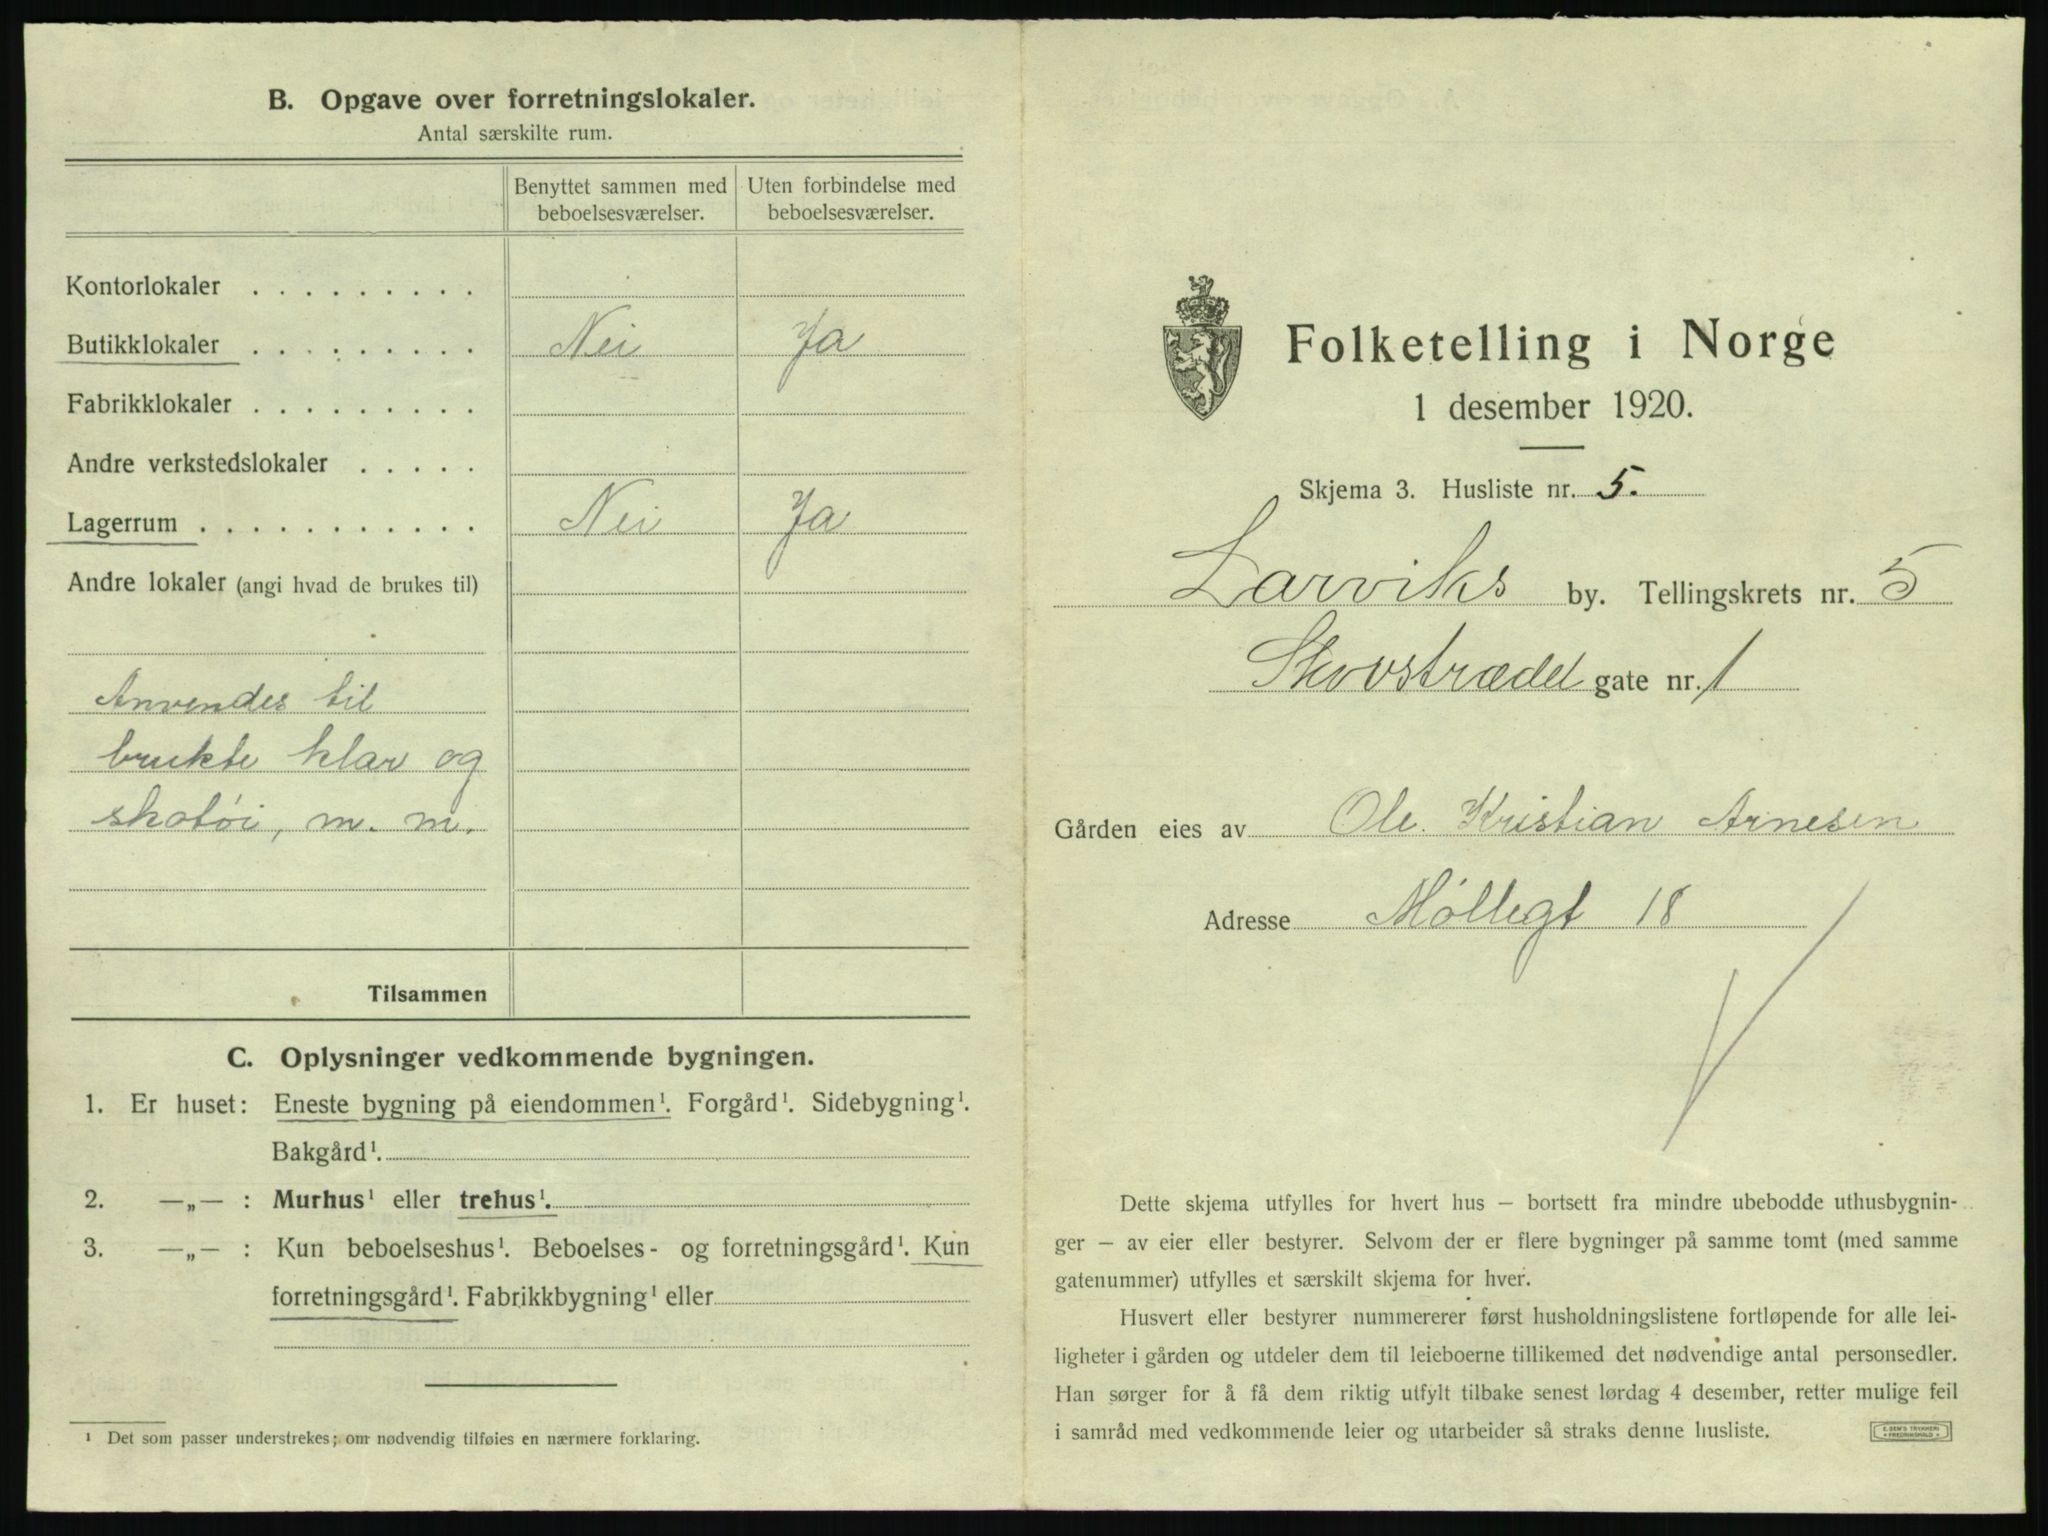 B. Opgave over forretningslokaler.
Antal særskilte rum.
Benyttet sammen med beboelsesværelser.
Uten forbindelse med beboelsesværelser.
Kontorlokaler . . . . . . . . .
Butikklokaler . . . . . . . . . Nei Ja
Fabrikklokaler . . . . . . . . .
Andre verkstedslokaler . . . . .
Lagerrum . . . . . . . . . . . Nei Ja
Andre lokaler (angi hvad de brukes til)
Anvendes til
brukte klær og
skotøi, m. m.
Tilsammen
C. Oplysninger vedkommende bygningen.
1. Er huset: Eneste bygning på eiendommen¹. Forgård¹. Sidebygning¹.
Bakgård¹.
2. —„— : Murhus¹ eller trehus¹.
3. —„— : Kun beboelseshus¹. Beboelses- og forretningsgård¹. Kun
forretningsgård¹. Fabrikkbygning¹ eller
¹ Det som passer understrekes; om nødvendig tilføies en nærmere forklaring.
Folketelling i Norge
1 desember 1920.
Skjema 3. Husliste nr. 5.
Larviks by. Tellingskrets nr. 5
Skovstrædet gate nr. 1
Gården eies av Ole. Kristian Arnesen
Adresse Møllegt 18
Dette skjema utfylles for hvert hus – bortsett fra mindre ubebodde uthusbygnin-
ger – av eier eller bestyrer. Selvom der er flere bygninger på samme tomt (med samme
gatenummer) utfylles et særskilt skjema for hver.
Husvert eller bestyrer nummererer først husholdningslistene fortløpende for alle lei-
ligheter i gården og utdeler dem til leieboerne tillikemed det nødvendige antal personsedler.
Han sørger for å få dem riktig utfylt tilbake senest lørdag 4 desember, retter mulige feil
i samråd med vedkommende leier og utarbeider så straks denne husliste.
E. SEM'S TRYKKERI
FREDRIKSHALD